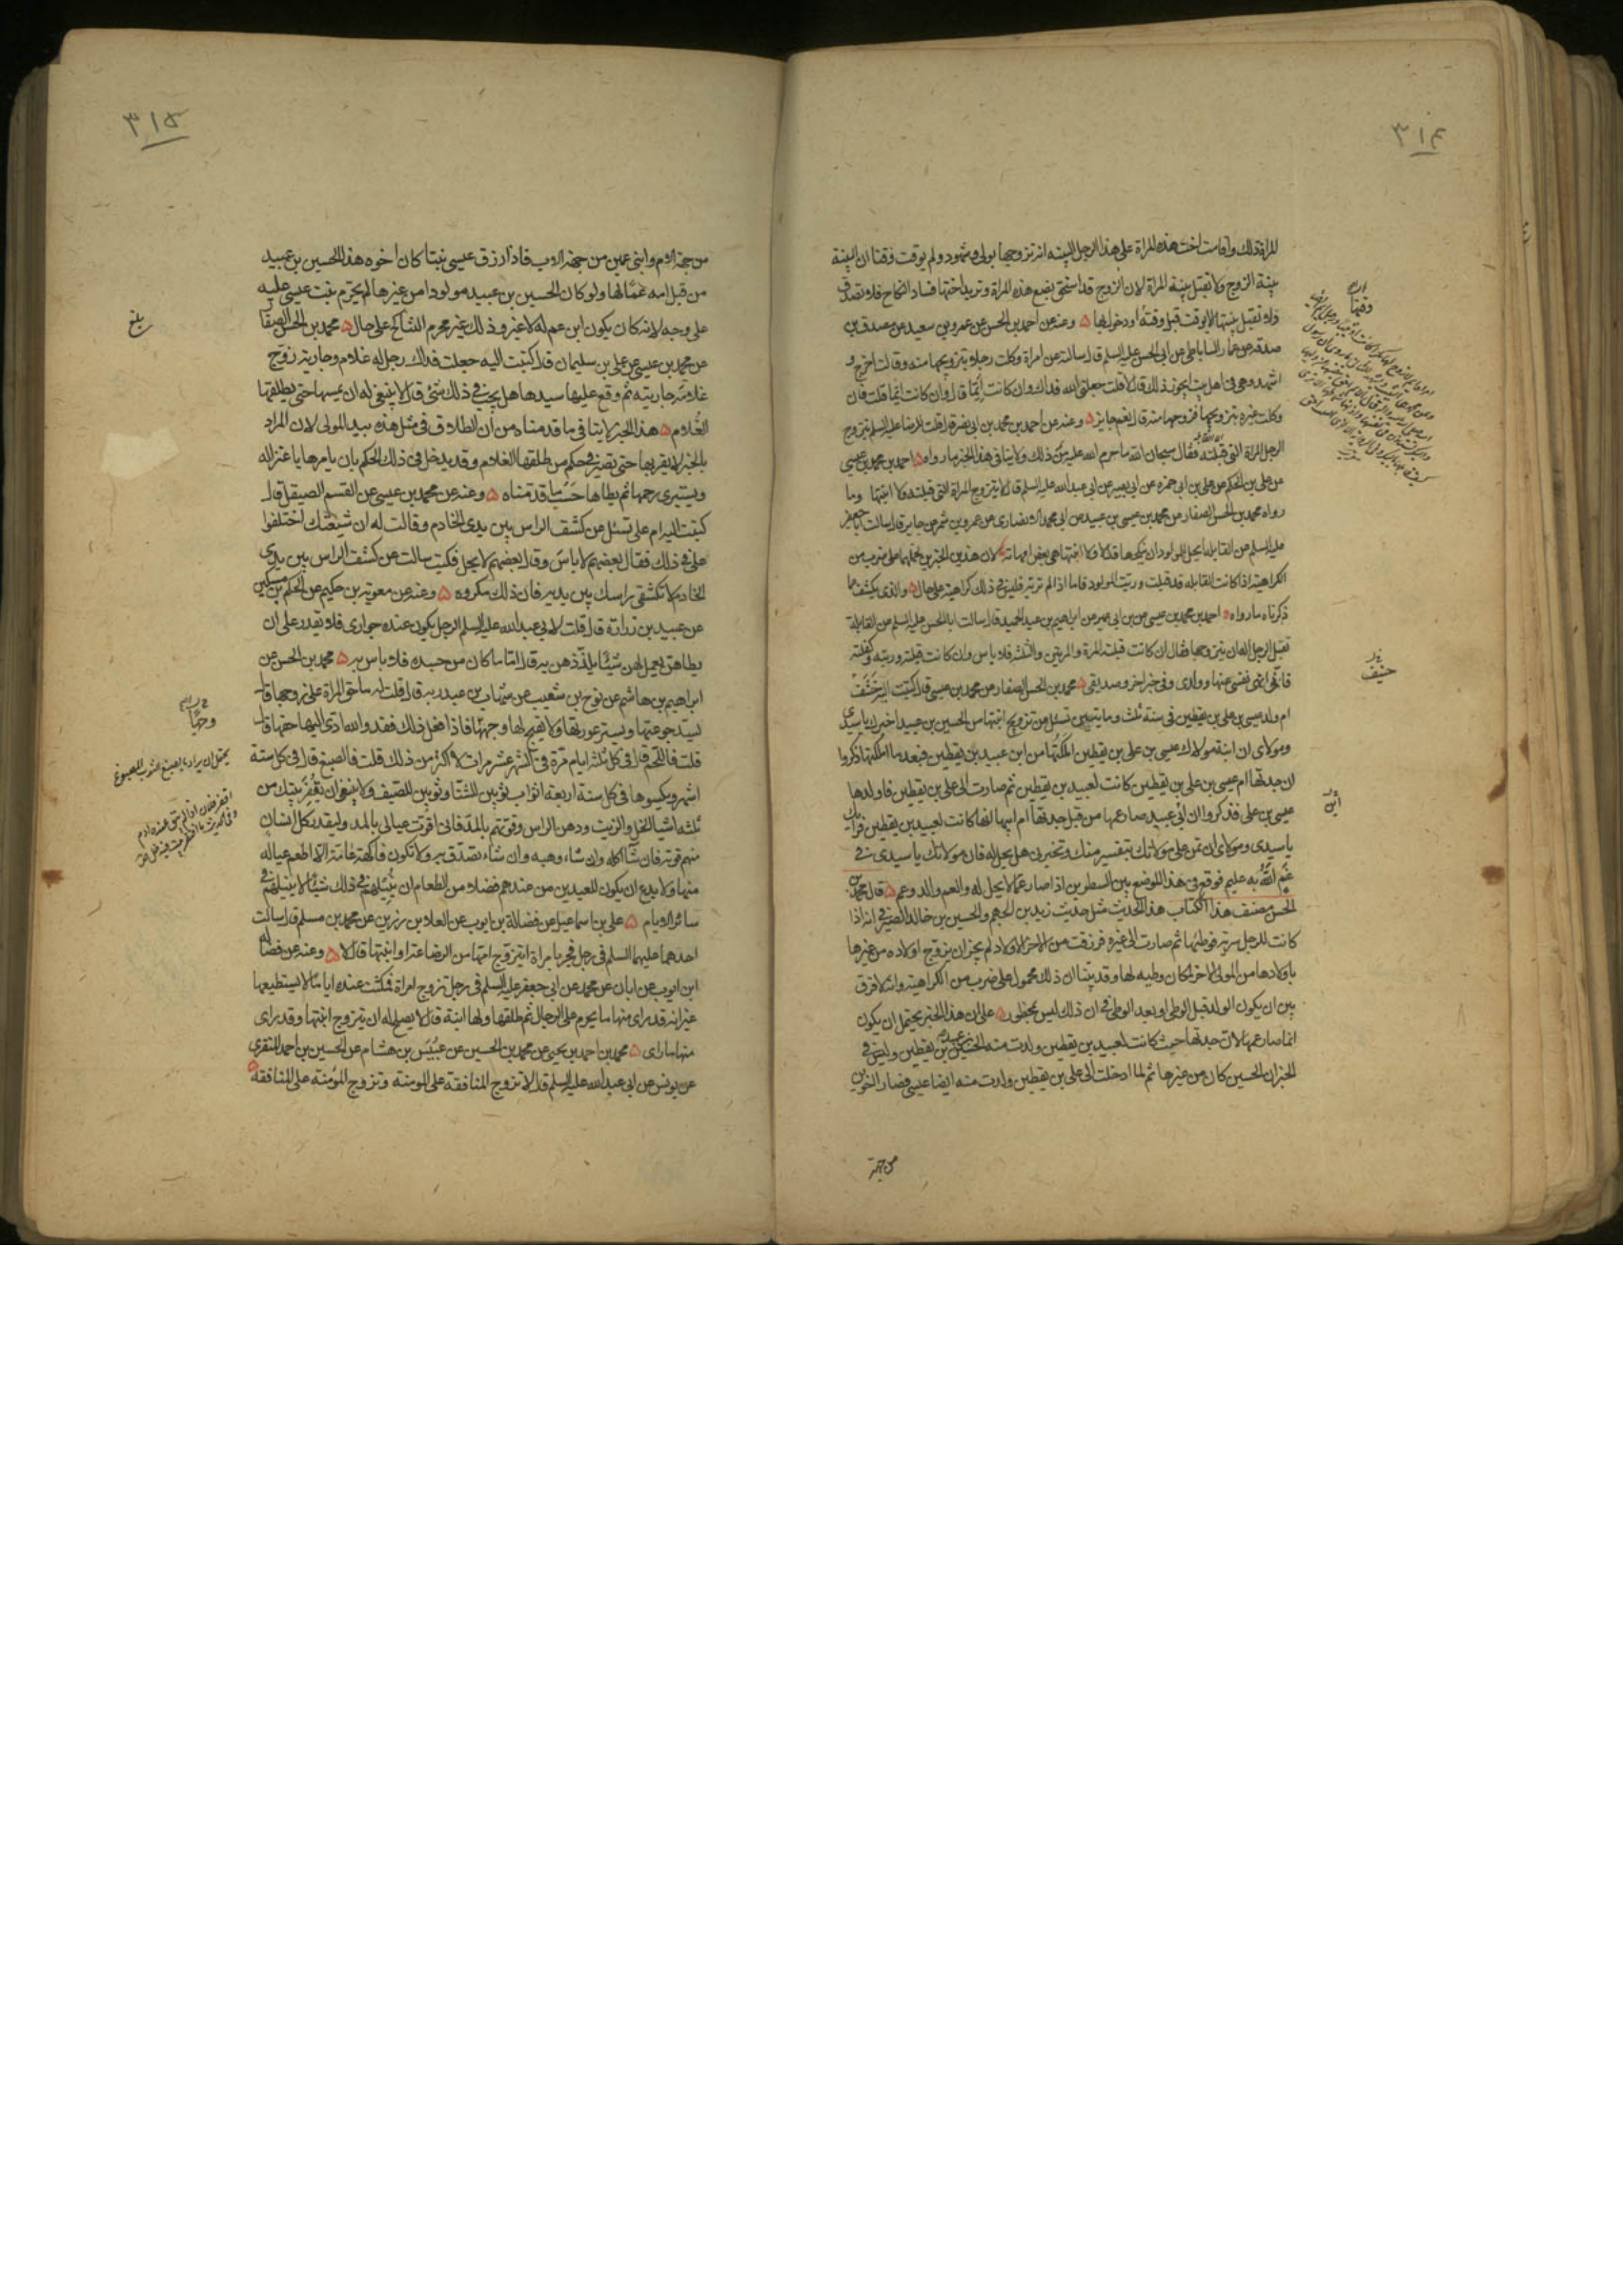 ٣١٤
للمراة ذلك واقامت اخت هذه المراة على هذا الرجل البينة انه تزوجها بولى وشهود ولم يوقت وقتا ان البينة
بينة الزوج ولا تقبل بينة المراة لان الزوج قد استحق بضع هذه المراة وتريد اختها فساد النكاح فلا تصدق
ولا تقبل بينتها الا بوقت قبل وقتها او دخول بها وعنه عن احمد بن الحسن عن عمرو بن سعيد عن مصدق بن
صدقة عن عمار الساباطى عن ابى الحسن عليه السلم قال سالته عن امراة وكلت رجلا بتزويجها منه وقالت اخرج و
اشهد وهى فى اهل بيت ايجوز ذلك قال لا قلت جعلنى الله فداك وان كانت ايما قال وان كانت ايما قلت فان
وكلت غيره بتزويجها فزوجها منه قال نعم جايز وعنه عن احمد بن محمد بن ابى نصر قال قلت للرضا عليه السلم يتزوج
الرجل المراة التى قبلته فقال سبحان الله ما حرم الله عليه من ذلك ولا ينافى هذا الخبر ما رواه احمد بن محمد بن عيسى
عن على بن الحكم عن على بن ابى حمزه عن ابى بصير عن ابى عبد الله عليه السلم قال لا يتزوج المراة التى قبلته ولا ابنتها وما
رواه محمد بن الحسن الصفار عن محمد بن عيسى بن عبيد عن ابى محمد الانصارى عن عمرو بن شمر عن جابر قال سالت ابا جعفر
عليه السلم عن القابلة ايحل للمولود ان ينكحها قال لا ولا ابنتها هى بعض امهاته لان هذين الخبرين نحملهما على ضرب من
الكراهية اذا كانت القابلة قد قبلت وربت المولود فاما اذا لم تربه فليس فى ذلك كراهية على حال والذى يكشف عما
ذكرناه ما رواه احمد بن محمد بن عيسى عن ابن ابى عمير عن ابراهيم بن عبد الحميد قال سالت ابا الحسن عليه السلم عن القابلة
تقبل الرجل اله ان يتزوجها فقال ان كانت قبلته المرة والمرتين والثلثة فلا باس وان كانت قبلته وربته وكفلته
فانى انهى نفسى عنها وولدى وفى خبر اخر وصديقى محمد بن الحسن الصفار عن محمد بن عيسى قال كتبت اليه خشف
ام ولد عيسى بن على بن يقطين فى سنة ثلث ومايتين تسئل عن تزويج ابنتها من الحسين بن عبيد اخبرك يا سيدى
ومولاى ان ابنة مولاك عيسى بن على بن يقطين املكتها من ابن عبيد بن يقطين فبعد ما املكتها ذكروا
ان جدتها ام عيسى بن على بن يقطين كانت لعبيد بن يقطين ثم صارت الى على بن يقطين فاولدها
عيسى بن على فذكروا ان ابن عبيد صار عمها من قبل جدتها ام ابيها انها كانت لعبيد بن يقطين فرايك
يا سيدى ومولاى ان تمن على مولاتك بتفسير منك وتخبرنى هل يحل له فان مولاتك يا سيدى فى
غم الله به عليم فوقع فى هذا الموضع بين السطرين اذا صار عما لا يحل له والعم والد وعم قال محمد بن
الحسن مصنف هذا الكتاب هذا الحديث مثل حديث زيد بن الجهم والحسين بن خالد الصيرفى انه اذا
كانت للرجل سرية فوطئها ثم صارت الى غيره فرزقت من الاخر الاولاد لم يجز ان يزوج اولاده من غيرها
باولادها من المولى الاخر لمكان وطيه لها وقد بينا ان ذلك محمول على ضرب من الكراهية وانه لا فرق
بين ان يكون الولد قبل الوطى او بعد الوطى فى ان ذلك ليس بمحظور على ان هذا الخبر يحتمل ان يكون
انما صار عمها لان جدتها حيث كانت لعبيد بن يقطين ولدت منه الحسين بن عبيد بن يقطين وليس فى
الخبر ان الحسين كان من غيرها ثم لما ادخلت الى على بن يقطين ولدت منه ايضا عيسى فصارا اخوين
من جهة
٣١٥
من جهة الام وابنى عمين من جهة الاب فاذا رزق عيسى بنتا كان اخوه هذا الحسين بن عبيد
من قبل امه عما لها ولو كان الحسين بن عبيد مولودا من غيرها لم يحرم بنت عيسى عليه
على وجه لانه كان يكون ابن عم له لا غير وذلك غير محرم التناكح على حال محمد بن الحسن الصفار
عن محمد بن عيسى عن على بن سليمان قال كتبت اليه جعلت فداك رجل له غلام وجارية زوج
غلامه جاريته ثم وقع عليها سيدها هل يجب فى ذلك شئ قال لا ينبغى له ان يمسها حتى يطلقها
الغلام هذا الخبر لا ينافى ما قدمناه من ان الطلاق فى مثل هذه بيد المولى لان المراد
بالخبر لا يقربها حتى تصير فى حكم من طلقها الغلام وقد يدخل فى ذلك الحكم بان يامرها باعتزاله
ويستبرى رحمها ثم يطاها حسبما قدمناه وعنه عن محمد بن عيسى عن القسم الصيقل قال
كتبت اليه ام على تسئل عن كشف الراس بين يدى الخادم وقالت له ان شيعتك اختلفوا
على فى ذلك فقال بعضهم لا باس وقال بعضهم لا يحل فكتب سالت عن كشف الراس بين يدى
الخادم لا تكشفى راسك بين يديه فان ذلك مكروه وعنه عن معوية بن حكيم عن الحكم بن مسكين
عن عبيد بن زرارة قال قلت لابى عبد الله عليه السلم الرجل يكون عنده جوارى فلا يقدر على ان
يطاهن يعمل لهن شيئا يلذذهن به قال اما ما كان من جسده فلا باس به محمد بن الحسن عن
ابراهيم بن هاشم عن نوح بن شعيب عن شهاب بن عبد ربه قال قلت له ما حق المراة على زوجها قال
يسد جوعتها ويستر عورتها ولا يقبح لها وجها فاذا فعل ذلك فقد والله ادى اليها حقها قال
قلت فاللحم قال فى كل ثلثة ايام مرة فى الشهر عشر مرات لا اكثر من ذلك قلت فالصبغ قال فى كل ستة
اشهر ويكسوها فى كل سنة اربعة اثواب ثوبين للشتا وثوبين للصيف ولا ينبغى ان يقفر بيتك من
ثلثه اشيا الخل والزيت ودهن الراس وقوتهم بالمد فانى اقوت عيالى بالمد وليقدر كل انسان
منهم قوته فان شآ اكله وان شاء وهبه وان شاء تصدق به ولا تكون فاكهة عامة الا اطعم عياله
منها ولا يدع ان يكون للعيدين من عندهم فضلا من الطعام ان ينيلهم فى ذلك شيئا لا ينيلهم فى
سائر الايام على بن اسماعيل عن فضالة بن ايوب عن العلا بن رزين عن محمد بن مسلم قال سالت
احدهما عليهما السلم فى رجل فجر بامراة ايتزوج امها من الرضاعة او ابنتها قال لا وعنه عن فضالة
ابن ايوب عن ابان عن محمد عن ابى جعفر عليه السلم فى رجل تزوج امراة فمكثت عنده اياما لا يستطيعها
غير انه قد راى منها ما يحرم على الرجال ثم طلقها ولها ابنة قال لا يصلح له ان يتزوج ابنتها وقد راى
منها ما راى محمد بن احمد بن يحيى عن محمد بن الحسين عن عبيس بن هشام عن الحسين بن احمد المنقرى
عن يونس عن ابى عبد الله عليه السلم قال لا تزوج المنافقة على المومنة وتزوج المؤمنة على المنافقة
بلغ